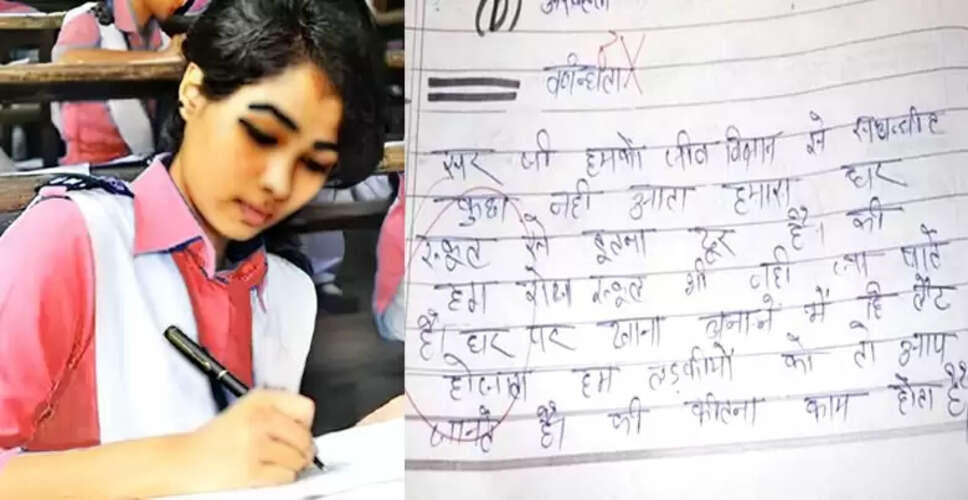 (b)
वर्णान्धता
सर जी हमको जीव विज्ञान से
कुछ नही आता हमारा घर
स्कूल से इतना दूर है। की
हम रोज स्कूल भी नही जा पाते
है। घर पर खाना बनाने में हि लेट
हम लड़कीयों को तो आप
जानते है। की कीतना काम होता है